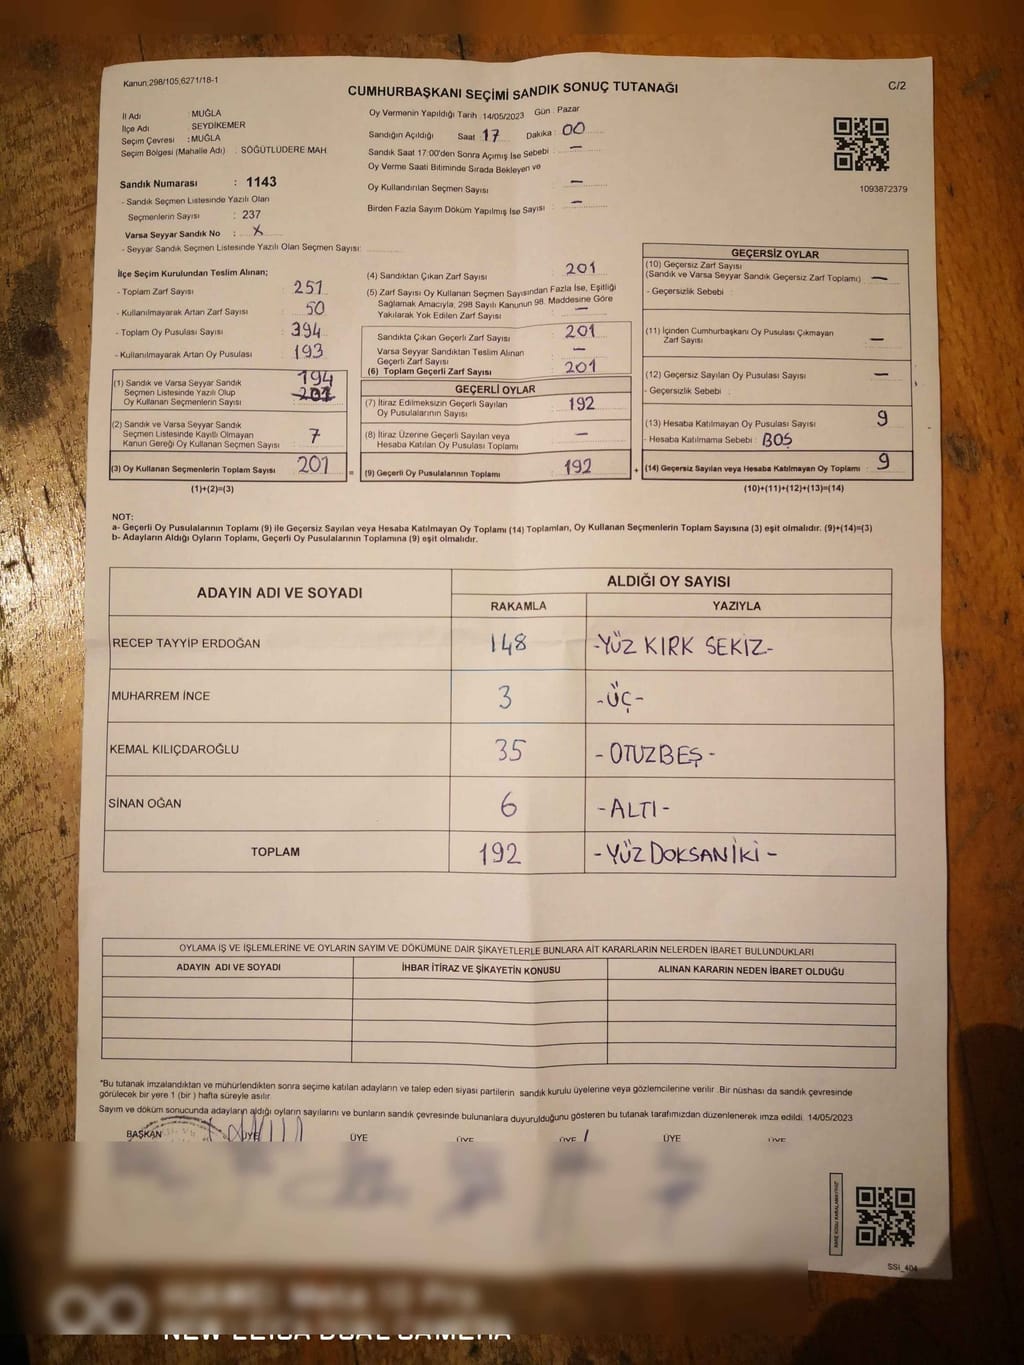 Kanun:298/105,6271/18-1
CUMHURBAŞKANI SEÇİMİ SANDIK SONUÇ TUTANAĞI
C/2
İl Adı : MUĞLA
İlçe Adı SEYDİKEMER
Seçim Çevresi : MUĞLA
Seçim Bölgesi (Mahalle Adı) : SÖĞÜTLÜDERE MAH.
Sandık Numarası : 1143
- Sandık Seçmen Listesinde Yazılı Olan
Seçmenlerin Sayısı : 237
Varsa Seyyar Sandık No : X
- Seyyar Sandık Seçmen Listesinde Yazılı Olan Seçmen Sayısı:
Oy Vermenin Yapıldığı Tarih :14/05/2023 Gün : Pazar
Sandığın Açıldığı Saat : 17 Dakika : 00
Sandık Saat 17:00'den Sonra Açılmış İse Sebebi : —
Oy Verme Saati Bitiminde Sırada Bekleyen ve
Oy Kullandırılan Seçmen Sayısı —
Birden Fazla Sayım Döküm Yapılmış İse Sayısı : —
1093872379
İlçe Seçim Kurulundan Teslim Alınan;
- Toplam Zarf Sayısı : 251
- Kullanılmayarak Artan Zarf Sayısı : 50
- Toplam Oy Pusulası Sayısı : 394
- Kullanılmayarak Artan Oy Pusulası : 193
(1) Sandık ve Varsa Seyyar Sandık
Seçmen Listesinde Yazılı Olup
Oy Kullanan Seçmenlerin Sayısı : 194
201
(2) Sandık ve Varsa Seyyar Sandık
Seçmen Listesinde Kayıtlı Olmayan
Kanun Gereği Oy Kullanan Seçmen Sayısı : 7
(3) Oy Kullanan Seçmenlerin Toplam Sayısı : 201
(1)+(2)=(3)
(4) Sandıktan Çıkan Zarf Sayısı : 201
(5) Zarf Sayısı Oy Kullanan Seçmen Sayısından Fazla İse, Eşitliği
Sağlamak Amacıyla, 298 Sayılı Kanunun 98. Maddesine Göre
Yakılarak Yok Edilen Zarf Sayısı : —
Sandıkta Çıkan Geçerli Zarf Sayısı : 201
Varsa Seyyar Sandıktan Teslim Alınan
Geçerli Zarf Sayısı : —
(6) Toplam Geçerli Zarf Sayısı : 201
GEÇERLİ OYLAR
(7) İtiraz Edilmeksizin Geçerli Sayılan
Oy Pusulalarının Sayısı : 192
(8) İtiraz Üzerine Geçerli Sayılan veya
Hesaba Katılan Oy Pusulası Toplamı : —
= (9) Geçerli Oy Pusulalarının Toplamı : 192
GEÇERSİZ OYLAR
(10) Geçersiz Zarf Sayısı
(Sandık ve Varsa Seyyar Sandık Geçersiz Zarf Toplamı) : —
- Geçersizlik Sebebi :
(11) İçinden Cumhurbaşkanı Oy Pusulası Çıkmayan
Zarf Sayısı : —
(12) Geçersiz Sayılan Oy Pusulası Sayısı : —
- Geçersizlik Sebebi :
(13) Hesaba Katılmayan Oy Pusulası Sayısı : 9
- Hesaba Katılmama Sebebi : BOŞ
+ (14) Geçersiz Sayılan veya Hesaba Katılmayan Oy Toplamı : 9
(10)+(11)+(12)+(13)=(14)
NOT:
a- Geçerli Oy Pusulalarının Toplamı (9) ile Geçersiz Sayılan veya Hesaba Katılmayan Oy Toplamı (14) Toplamları, Oy Kullanan Seçmenlerin Toplam Sayısına (3) eşit olmalıdır. (9)+(14)=(3)
b- Adayların Aldığı Oyların Toplamı, Geçerli Oy Pusulalarının Toplamına (9) eşit olmalıdır.
ADAYIN ADI VE SOYADI
ALDIĞI OY SAYISI
RAKAMLA YAZIYLA
RECEP TAYYİP ERDOĞAN 148 -YÜZ KIRK SEKİZ-
MUHARREM İNCE 3 -ÜÇ-
KEMAL KILIÇDAROĞLU 35 -OTUZBEŞ-
SİNAN OĞAN 6 -ALTI-
TOPLAM 192 -YÜZDOKSANİKİ-
OYLAMA İŞ VE İŞLEMLERİNE VE OYLARIN SAYIM VE DÖKÜMÜNE DAİR ŞİKAYETLERLE BUNLARA AİT KARARLARIN NELERDEN İBARET BULUNDUKLARI
ADAYIN ADI VE SOYADI İHBAR İTİRAZ VE ŞİKAYETİN KONUSU ALINAN KARARIN NEDEN İBARET OLDUĞU
*Bu tutanak imzalandıktan ve mühürlendikten sonra seçime katılan adayların ve talep eden siyasi partilerin sandık kurulu üyelerine veya gözlemcilerine verilir .Bir nüshası da sandık çevresinde
görülecek bir yere 1 (bir ) hafta süreyle asılır.
Sayım ve döküm sonucunda adayların aldığı oyların sayılarını ve bunların sandık çevresinde bulunanlara duyurulduğunu gösteren bu tutanak tarafımızdan düzenlenerek imza edildi. 14/05/2023
BAŞKAN ÜYE ÜYE ÜYE ÜYE ÜYE ÜYE
SSI_404
NEW LEICA DUAL CAMERA